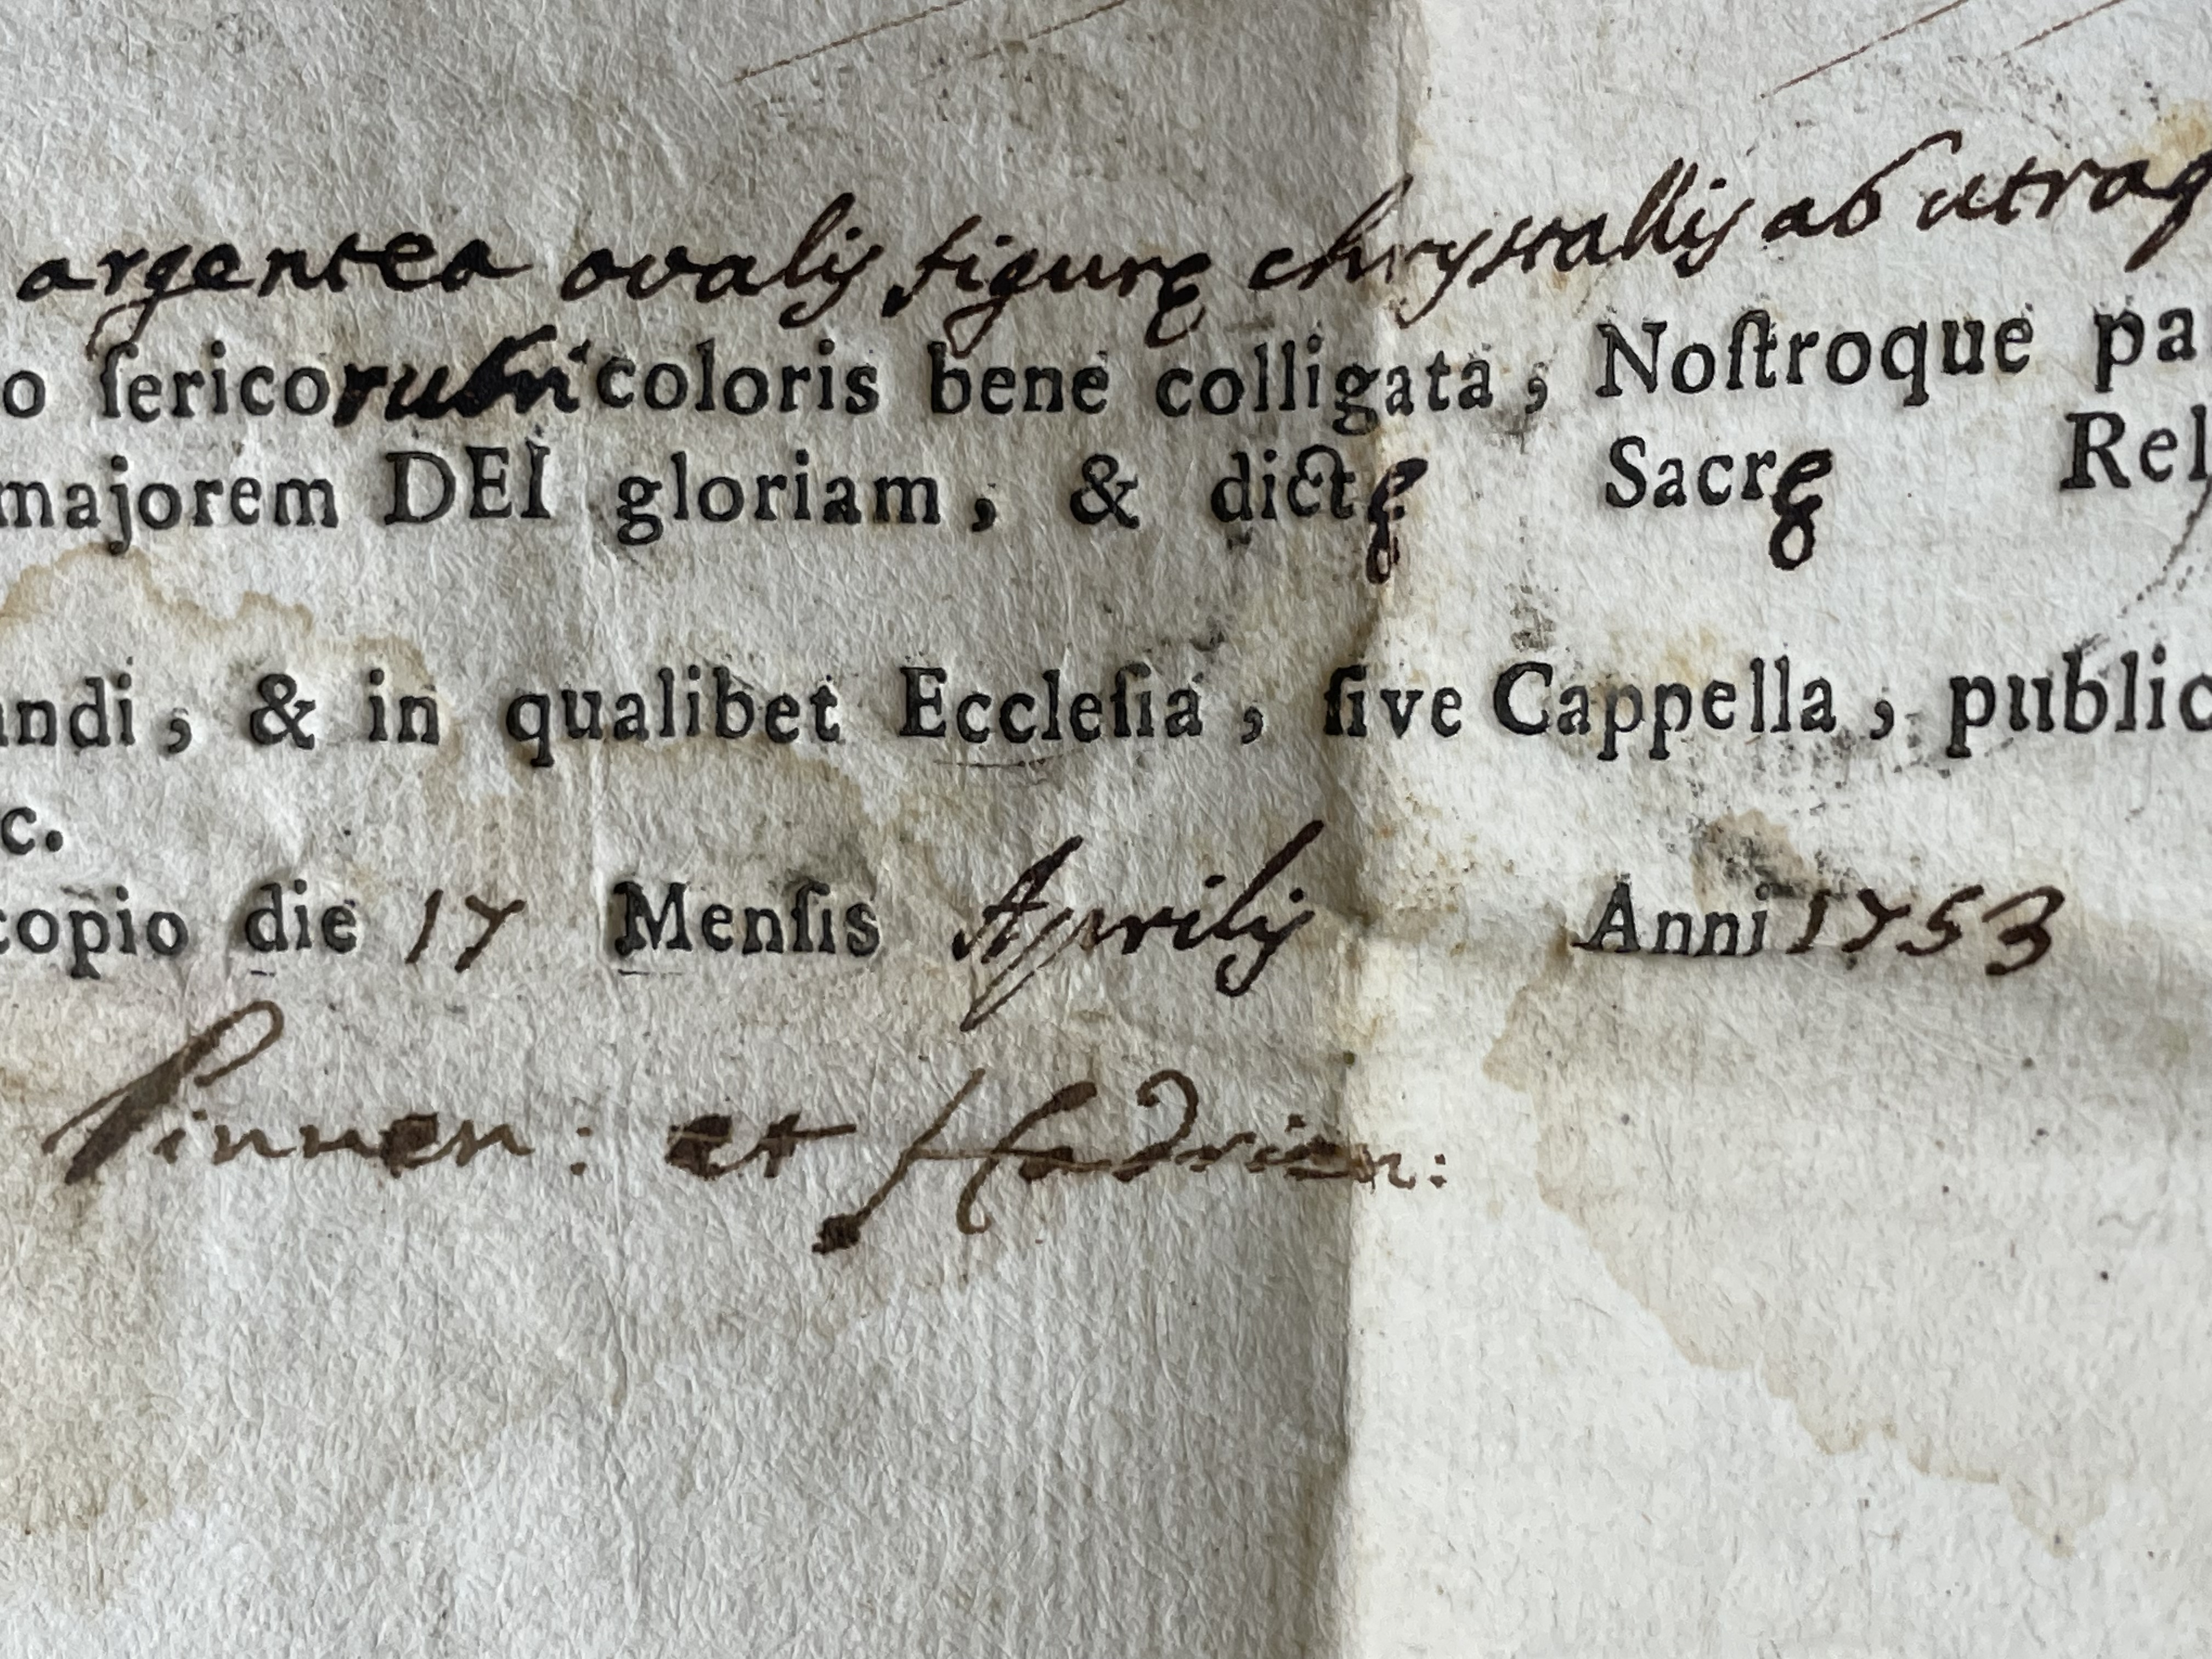 argentea ovalis figurę chrystallis ab utraq
o ſerico rubri coloris bene colligata, Noſtroque pa
majorem DEI gloriam, & dictę Sacrę Rel
andi, & in qualibet Eccleſia, ſive Cappella, public
c.
copio die 17 Menſis Aprilis Anni 1753
Pinnen: et Hadrien: